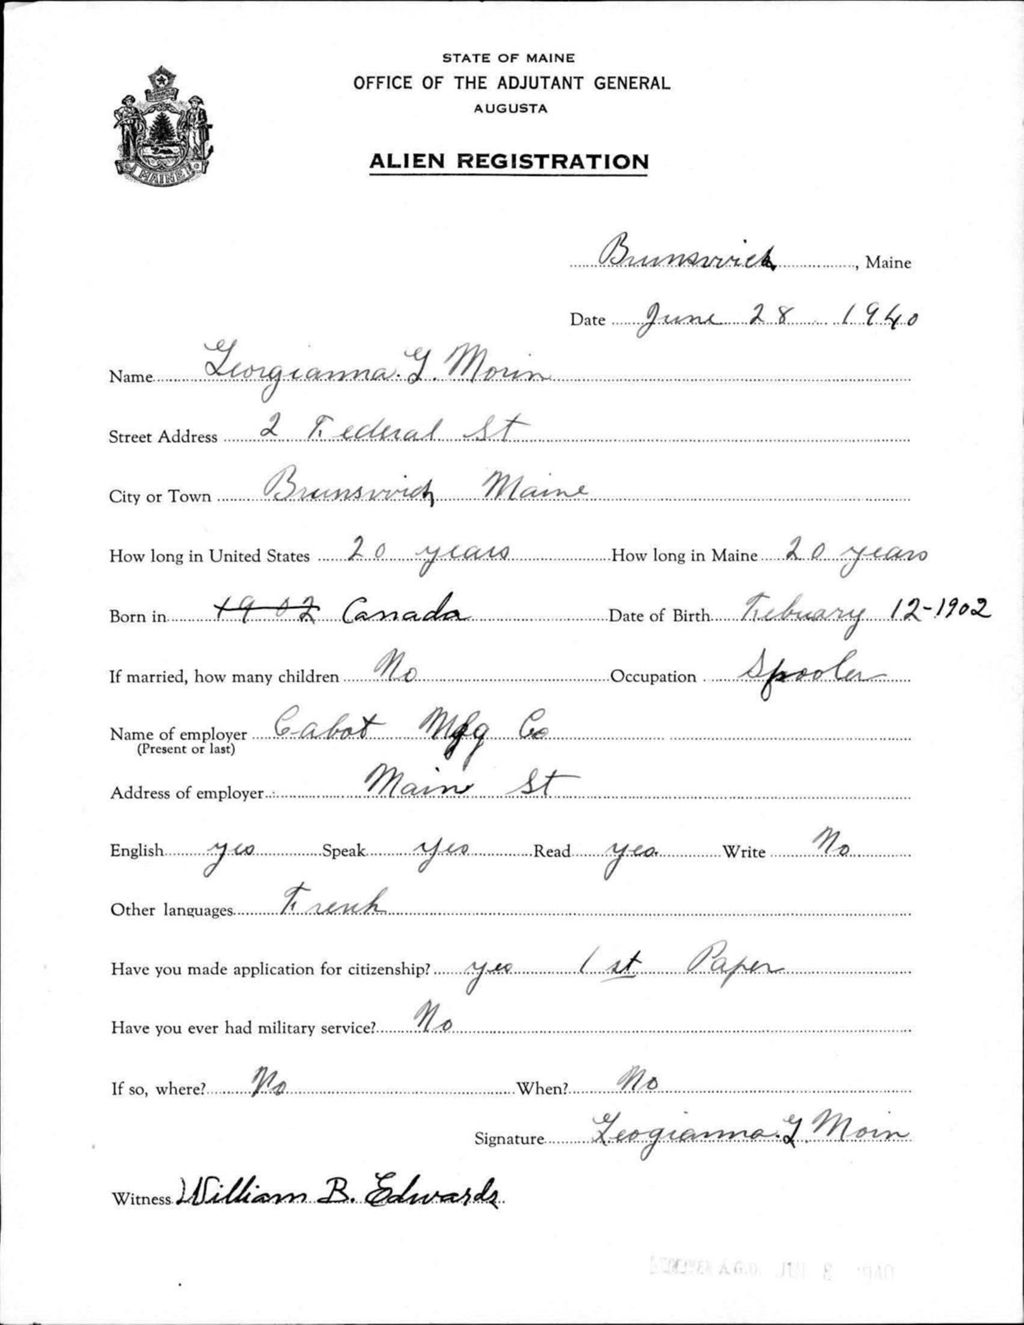 STATE OF MAINE
OFFICE OF THE ADJUTANT GENERAL
AUGUSTA
ALIEN REGISTRATION
MAINE
Brunswick, Maine
Date June 28 1940
Name Georgianna. G. Morin
Street Address 2 Federal St
City or Town Brunswick Maine
How long in United States 20 years How long in Maine 20 years
Born in 1902 Canada Date of Birth Febuary 12-1902
If married, how many children No Occupation Spooler
Name of employer Cabot Mfg Co
(Present or last)
Address of employer Main St
English yes Speak yes Read yes Write No
Other languages Frenh
Have you made application for citizenship? yes 1 st Paper
Have you ever had military service? No
If so, where? No When? No
Signature Geogianna. G. Morin
Witness William B. Edwards